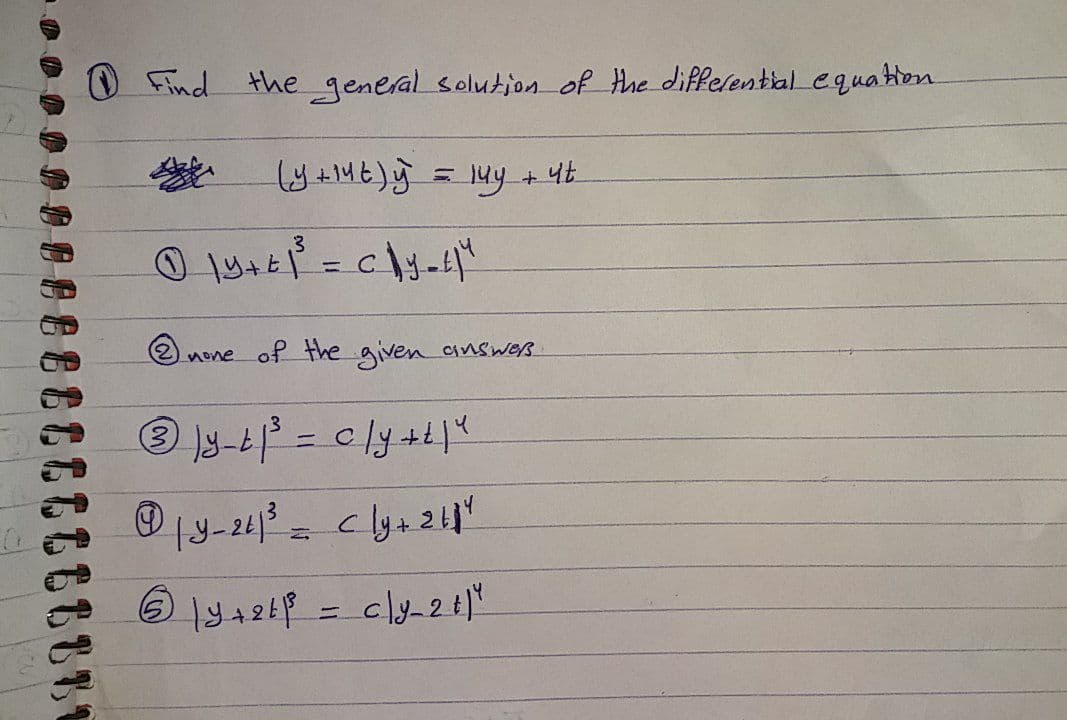 ① Find the general solution of the differential equation
(y+14t)ẏ = 14y + 4t
① |y+t|³ = c|y-t|⁴
② none of the given answers
③ |y-t|³ = c|y+t|⁴
④ |y-2t|³ = c|y+2t|⁴
⑤ |y+2t|³ = c|y-2t|⁴